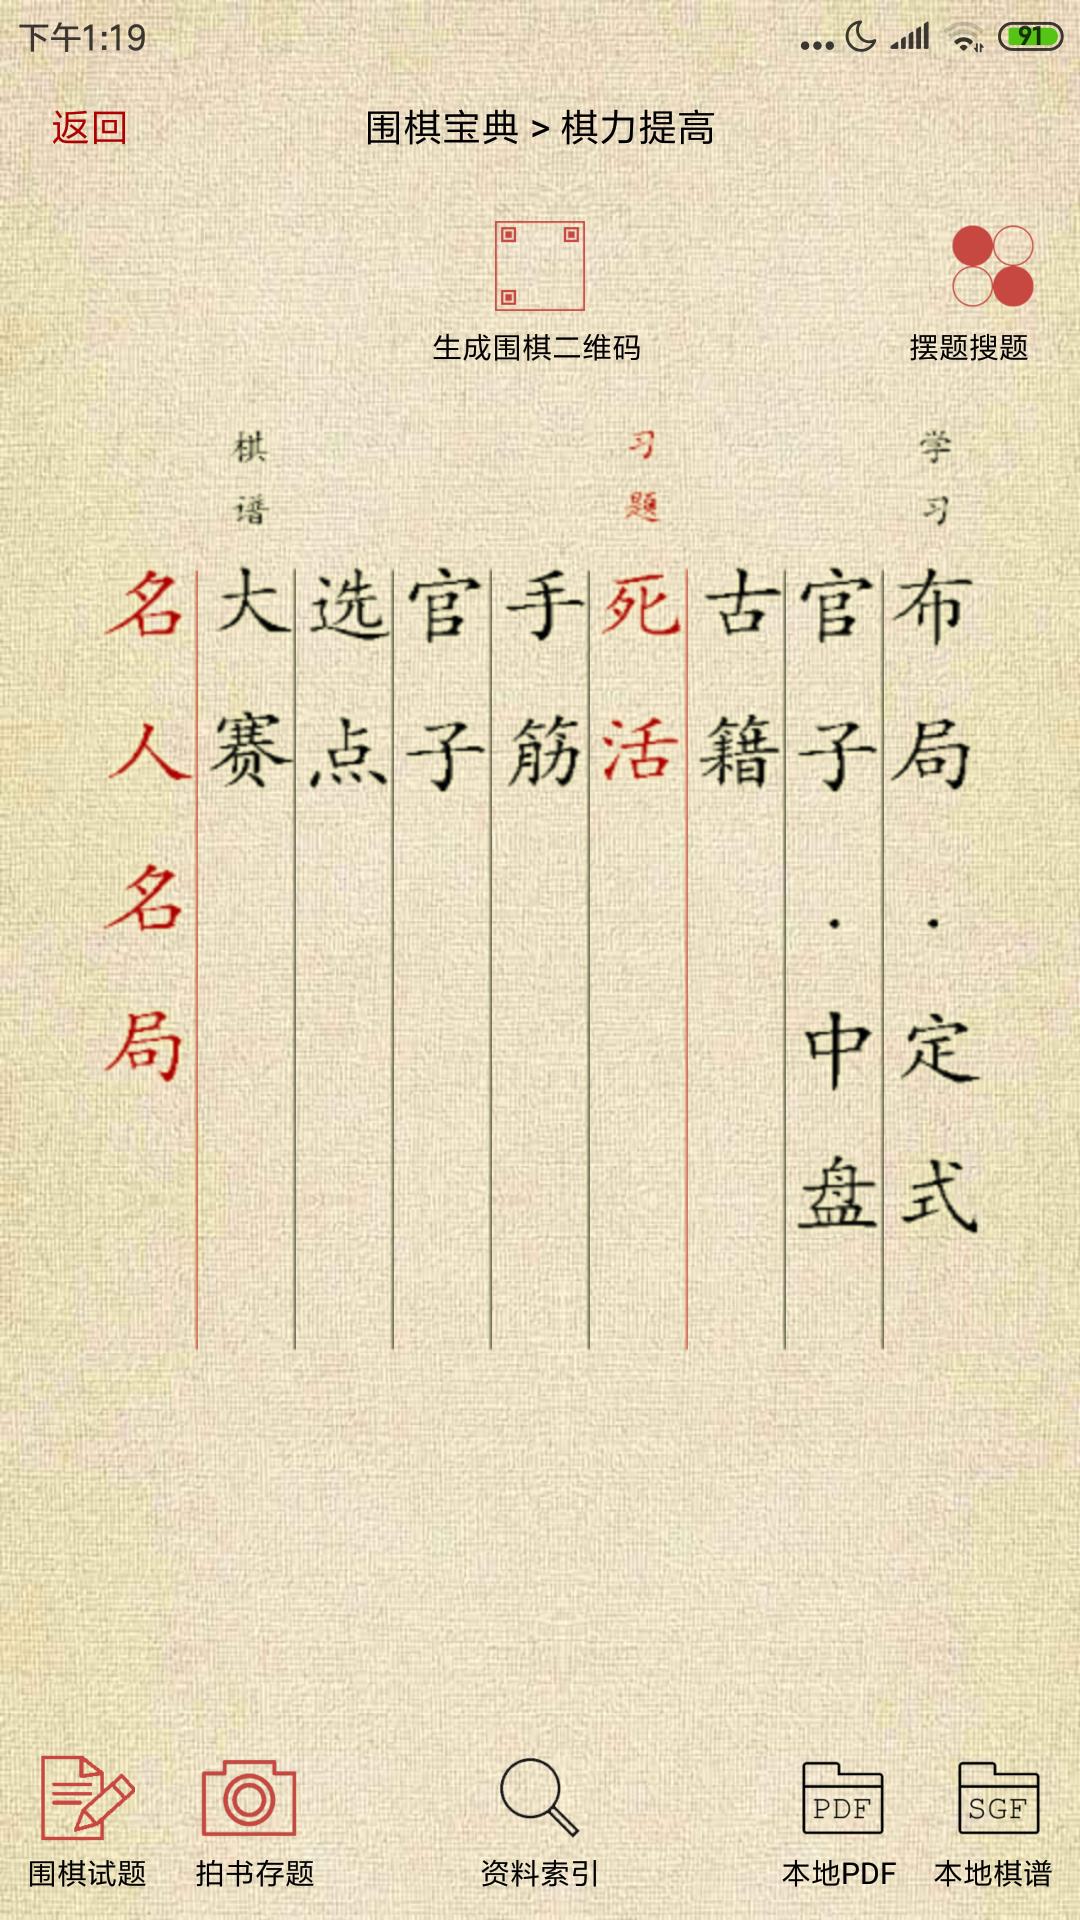 下午1:19
91
返回
围棋宝典 > 棋力提高
生成围棋二维码
摆题搜题
学习
布局.定式
官子.中盘
古籍
习题
死活
手筋
官子
棋谱
选点
大赛
名人名局
围棋试题
拍书存题
资料索引
PDF
本地PDF
SGF
本地棋谱